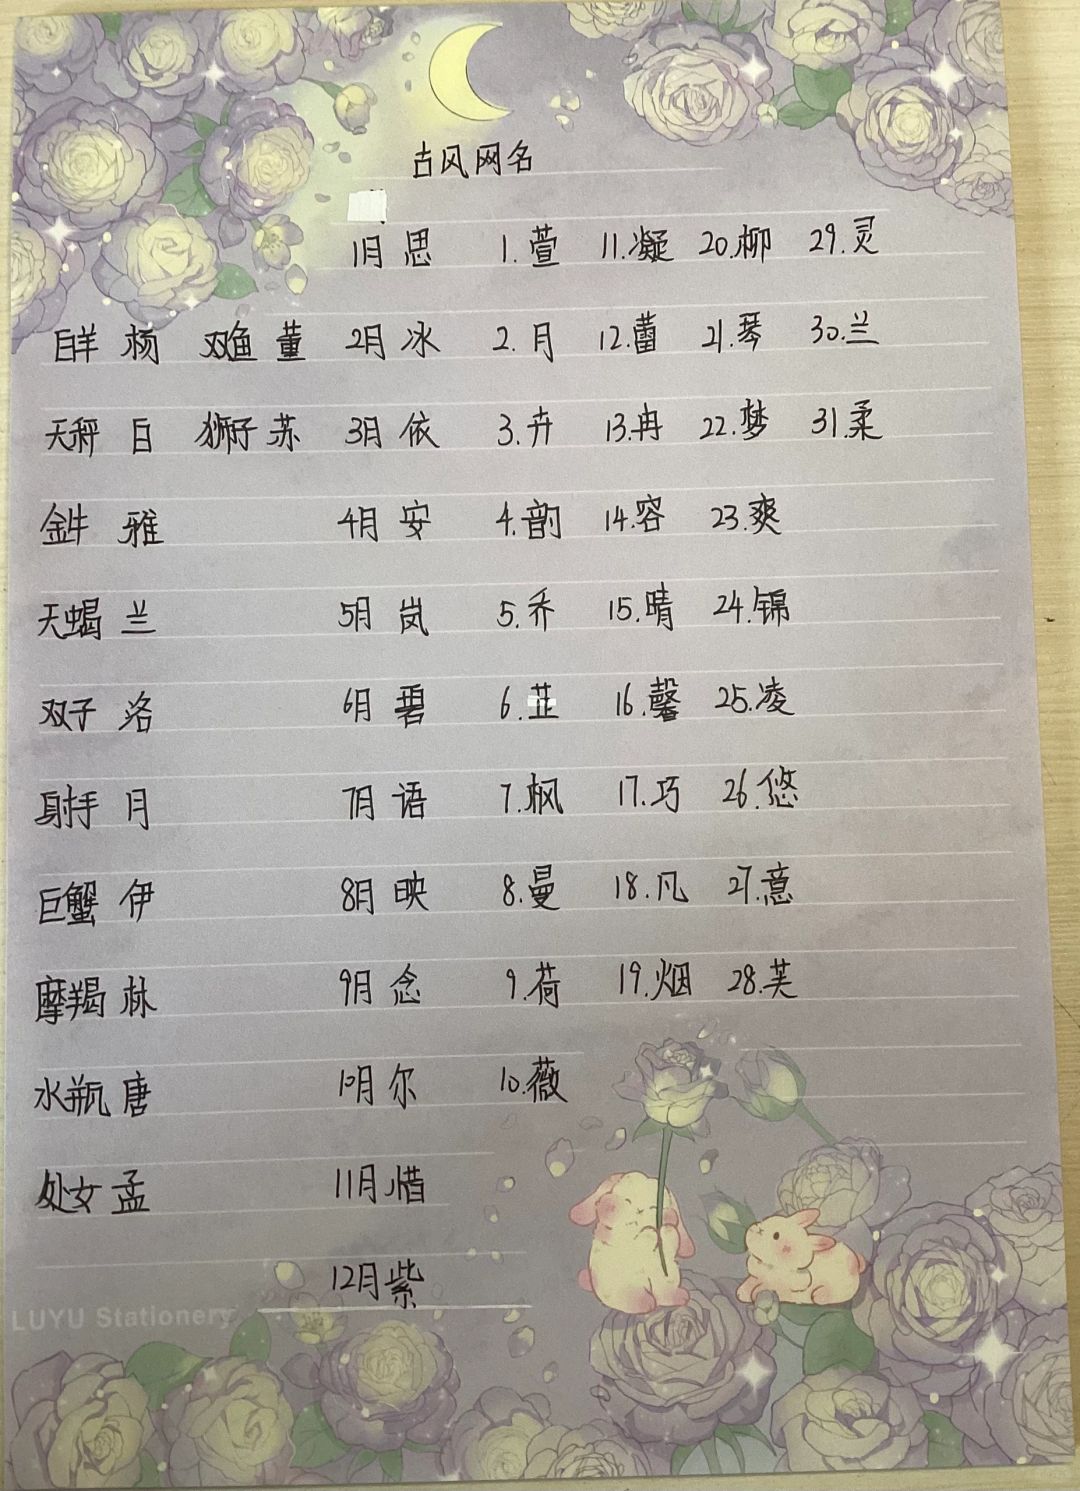 古风网名
1月 思 1.萱 11.凝 20.柳 29.灵
白羊 杨 双鱼 董 2月 冰 2.月 12.蕾 21.琴 30.兰
天秤 白 狮子 苏 3月 依 3.卉 13.冉 22.梦 31.柔
金牛 雅 4月 安 4.韵 14.容 23.爽
天蝎 兰 5月 岚 5.乔 15.晴 24.锦
双子 洛 6月 碧 6.芷 16.馨 25.凌
射手 月 7月 语 7.枫 17.巧 26.悠
巨蟹 伊 8月 映 8.曼 18.凡 27.意
摩羯 林 9月 念 9.荷 19.烟 28.芙
水瓶 唐 10月 尔 10.薇
处女 孟 11月 惜
12月 紫
LUYU Stationery